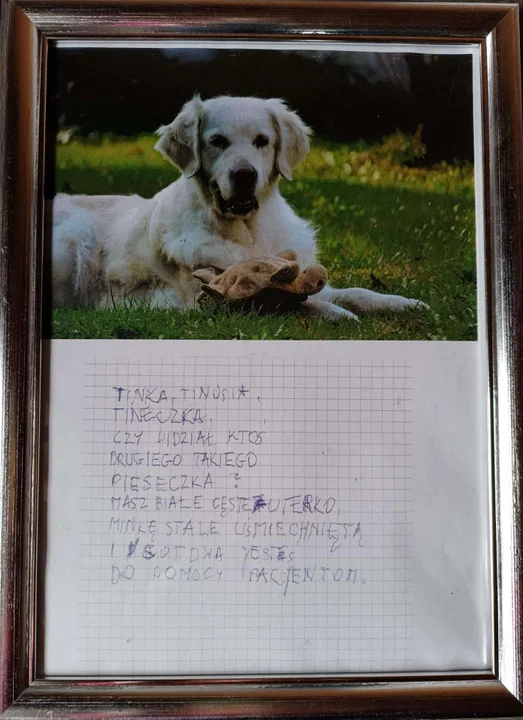 TINKA, TINUSIA,
TINECZKA,
CZY WIDZIAŁ KTOŚ
DRUGIEGO TAKIEGO
PIESECZKA?
MASZ BIAŁE GĘSTE FUTERKO,
MINKĘ STALE UŚMIECHNIĘTĄ
I GOTOWA JESTEŚ
DO POMOCY PACJENTOM.